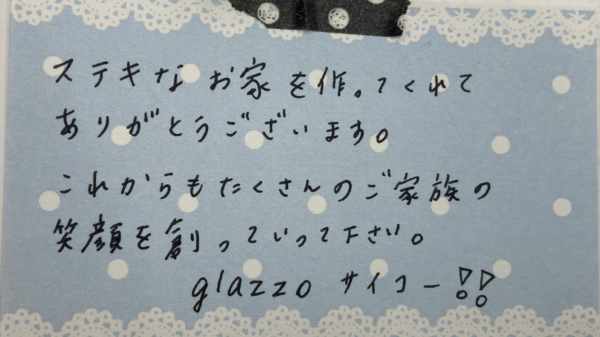 ステキなお家を作ってくれて
ありがとうございます。
これからもたくさんのご家族の
笑顔を創っていって下さい。
glazzo サイコー!!